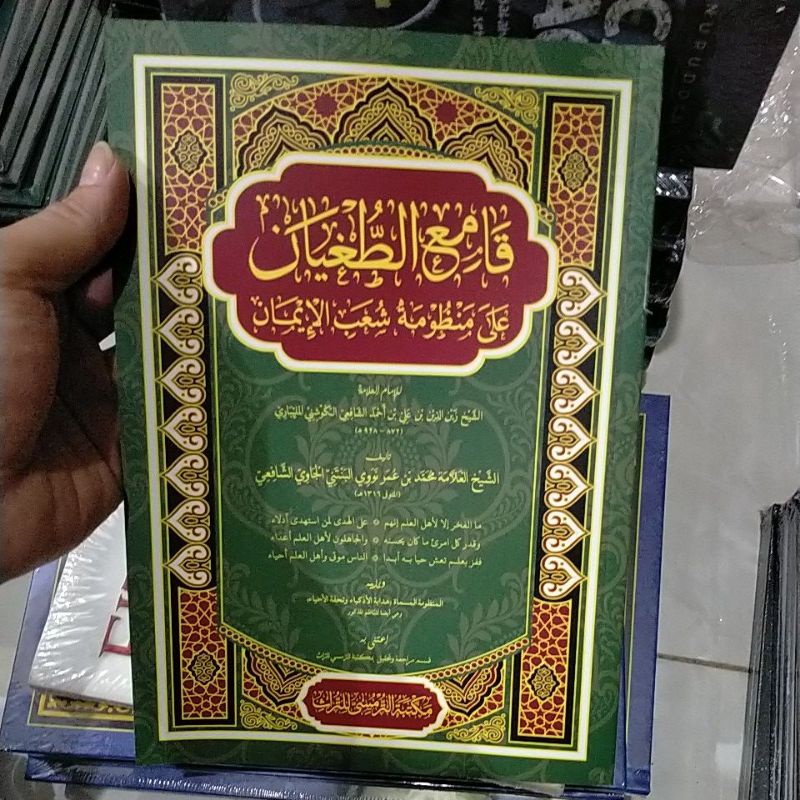 قَامِعُ الطُّغْيَانِ
عَلَى مَنْظُومَةُ شُعَبِ الإِيْمَانِ
للإمام العلامة
الشيخ زين الدين بن علي بن أحمد الشافعي الكوشني المليباري
(٨٧٢ - ٩٢٨ هـ)
تأليف
الشيخ العلامة محمد بن عمر نووي البنتني الجاوي الشافعي
(المتوفى ١٣١٦هـ)
ما الفخر إلا لأهل العلم إنهم * على الهدى لمن استهدى أدلاء
وقدر كل امرئ ما كان يحسنه * والجاهلون لأهل العلم أعداء
ففز بعلم تعش حيا به أبدا * الناس موتى وأهل العلم أحياء
ويليه
المنظومة المسماة بهداية الأذكياء وتحفة الأحياء،
وهي أيضا للناظم المذكور
إعتنى به
قسم مراجعة وتحقيق بمكتبة الترمسي للتراث
مكتبة الترمسي للتراث